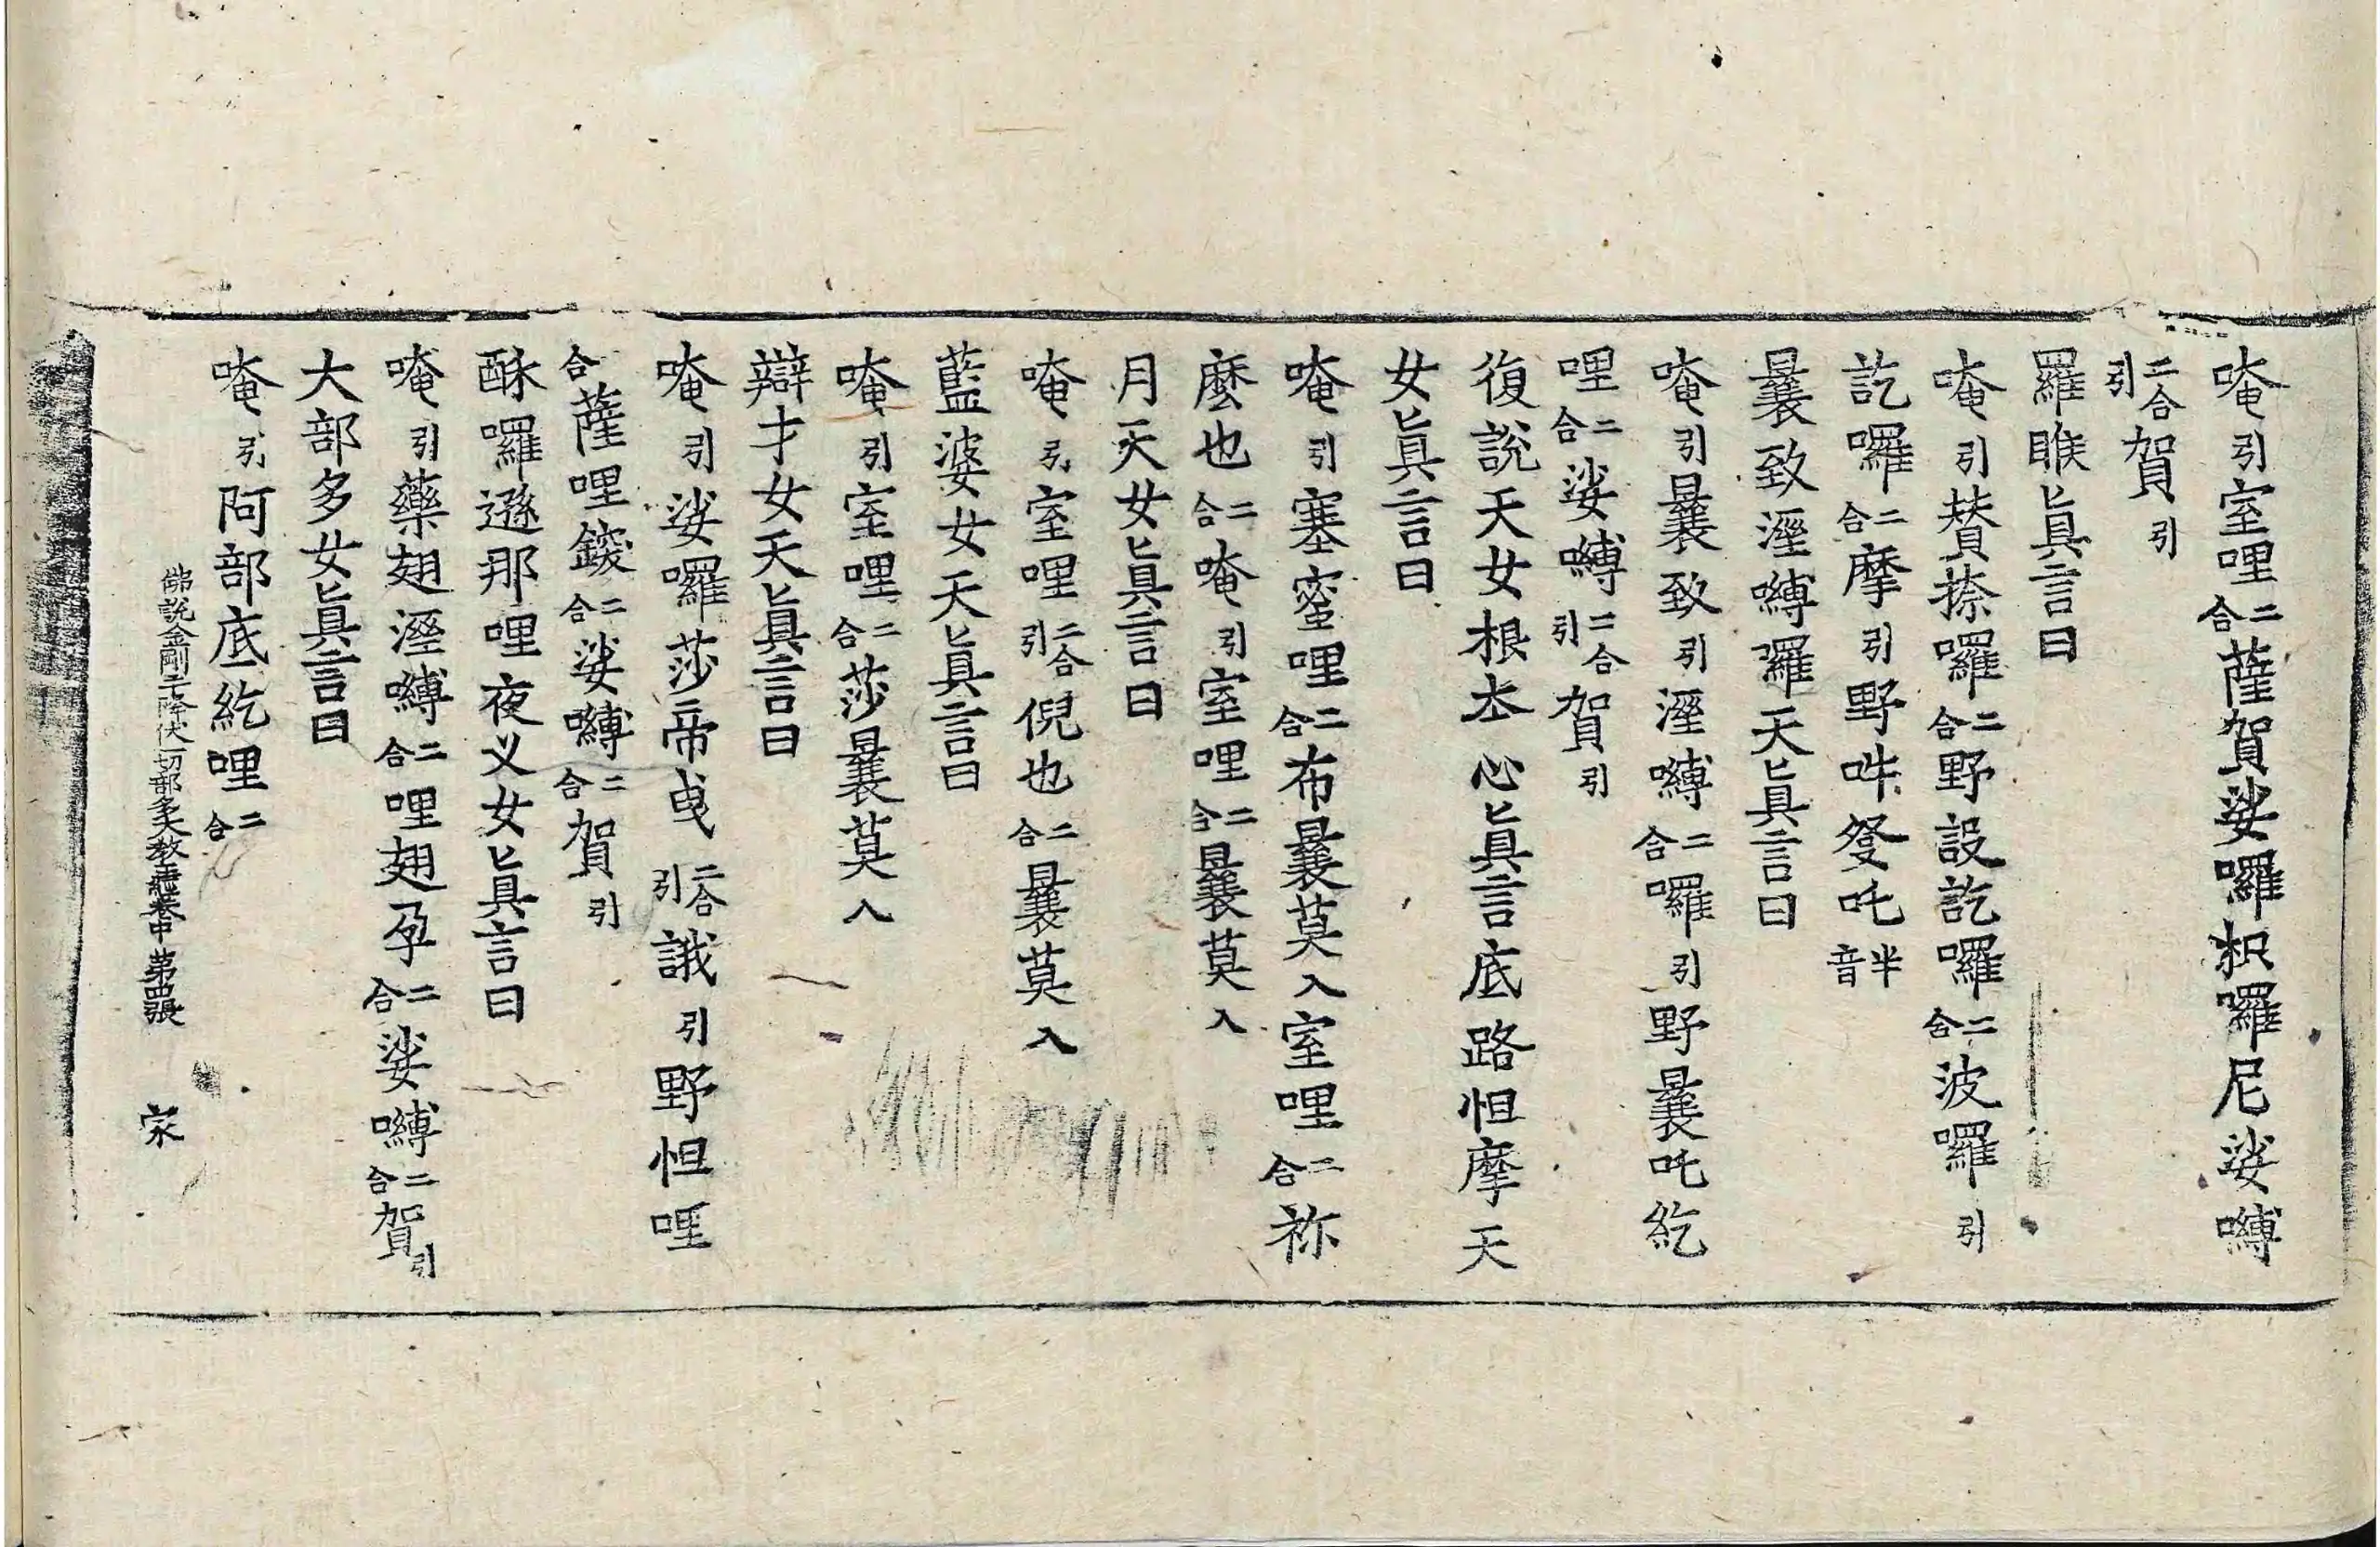 唵引室哩二合薩賀娑囉枳囉尼娑嚩
二合引賀引
羅睺眞言曰
唵引賛捺囉二合野設訖囉二合波囉引
訖囉二合摩引野吽發吒半音
曩致濕嚩囉天眞言曰
唵引曩致引濕嚩二合囉引野曩吒紇
哩二合娑嚩二合引賀引
復說天女根本心眞言底路怛摩天
女眞言曰
唵引塞蜜哩二合布曩莫入室哩二合祢
麽也二合唵引室哩二合曩莫入
月天女眞言曰
唵引室哩二合引倪也二合曩莫入
藍婆女天眞言曰
唵引室哩二合莎曩莫入
辯才女天眞言曰
唵引娑囉莎帝曳二合引誐引野怛哩
合薩哩鑁二合娑嚩二合賀引
酥囉遜那哩夜叉女眞言曰
唵引藥翅濕嚩二合哩翅孕二合娑嚩二合賀引
大部多女眞言曰
唵引阿部底紇哩二合
佛說金剛手降伏一切部多大教王經卷中 第四張 家